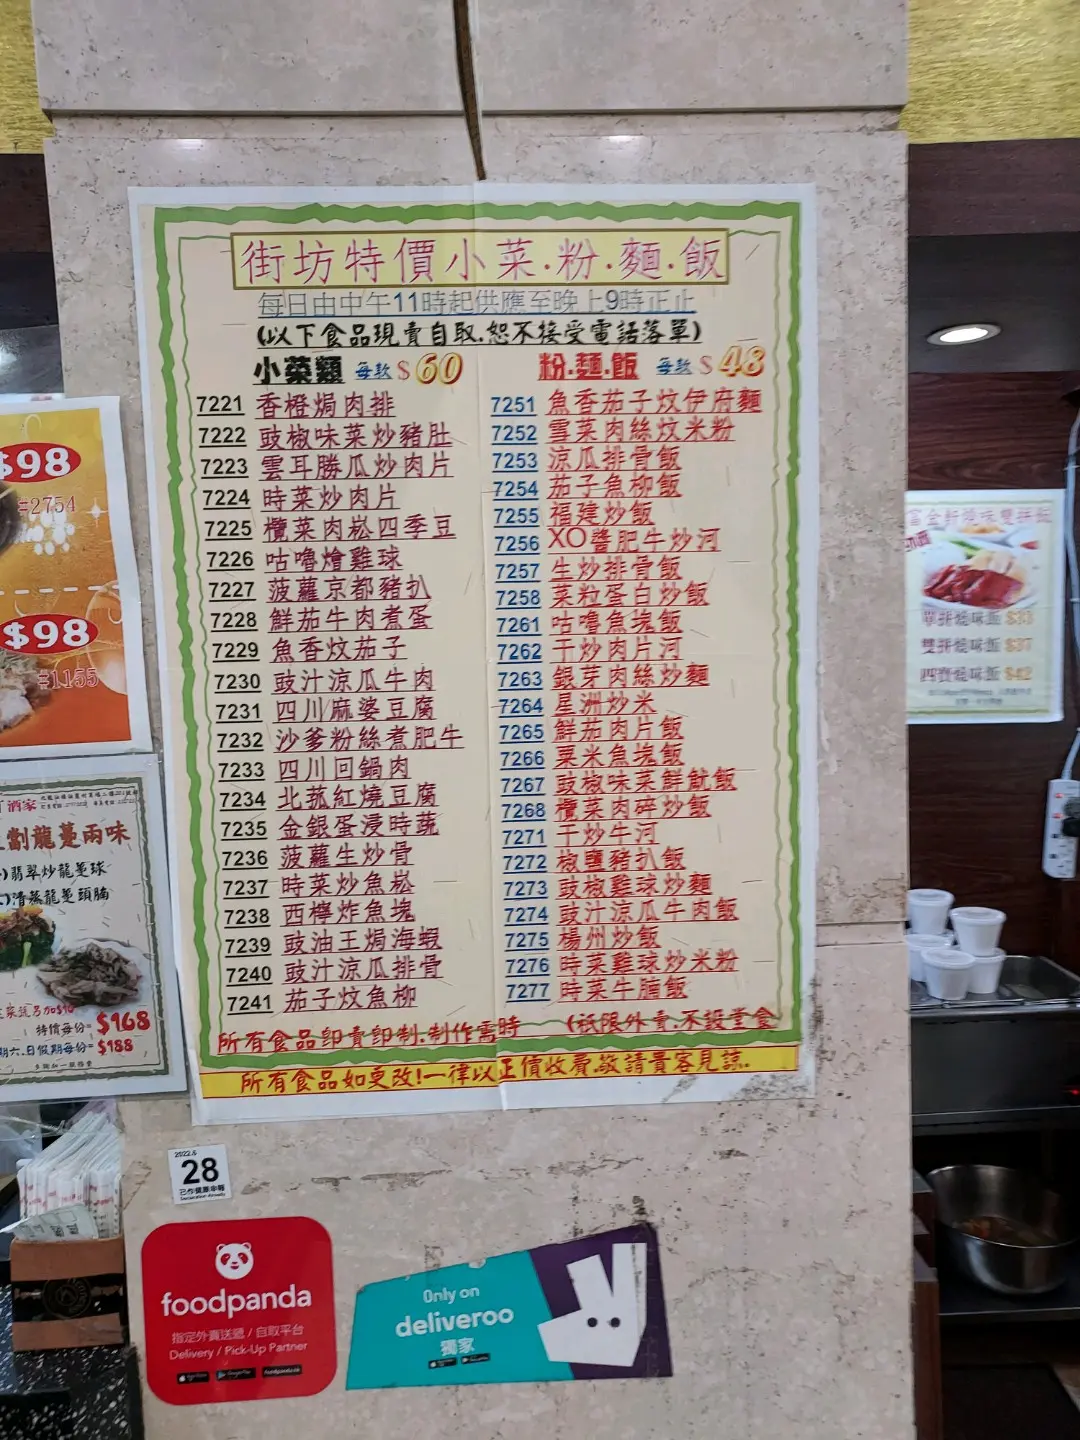 街坊特價小菜.粉.麵.飯
每日由中午11時起供應至晚上9時正止
(以下食品現賣自取.恕不接受電話落單)
小菜類 每款 $60
7221 香橙焗肉排
7222 豉椒味菜炒豬肚
7223 雲耳勝瓜炒肉片
7224 時菜炒肉片
7225 欖菜肉崧四季豆
7226 咕嚕燴雞球
7227 菠蘿京都豬扒
7228 鮮茄牛肉煮蛋
7229 魚香炆茄子
7230 豉汁涼瓜牛肉
7231 四川麻婆豆腐
7232 沙爹粉絲煮肥牛
7233 四川回鍋肉
7234 北菰紅燒豆腐
7235 金銀蛋浸時蔬
7236 菠蘿生炒骨
7237 時菜炒魚崧
7238 西檸炸魚塊
7239 豉油王焗海蝦
7240 豉汁涼瓜排骨
7241 茄子炆魚柳
粉.麵.飯 每款 $48
7251 魚香茄子炆伊府麵
7252 雪菜肉絲炆米粉
7253 涼瓜排骨飯
7254 茄子魚柳飯
7255 福建炒飯
7256 XO醬肥牛炒河
7257 生炒排骨飯
7258 菜粒蛋白炒飯
7261 咕嚕魚塊飯
7262 干炒肉片河
7263 銀芽肉絲炒麵
7264 星洲炒米
7265 鮮茄肉片飯
7266 粟米魚塊飯
7267 豉椒味菜鮮魷飯
7268 欖菜肉碎炒飯
7271 干炒牛河
7272 椒鹽豬扒飯
7273 豉椒雞球炒麵
7274 豉汁涼瓜牛肉飯
7275 楊州炒飯
7276 時菜雞球炒米粉
7277 時菜牛腩飯
所有食品即賣即制.制作需時 (祇限外賣.不設堂食
所有食品如更改!一律以正價收費.敬請貴客見諒.
$98
#2754
$98
#1155
酒家
劏龍躉兩味
翡翠炒龍躉球
清蒸龍躉頭腩
特價每份=$168
期六.日假期每份=$188
富金軒燒味雙拼飯
單拼燒味飯 $33
雙拼燒味飯 $37
四寶燒味飯 $42
28
foodpanda
指定外賣送遞 / 自取平台
Delivery / Pick-Up Partner
Only on
deliveroo
獨家